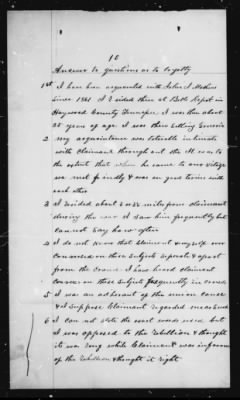 10
Answer to questions as to loyalty
1st I have been acquainted with John A
since 1861 I resided there at Bells Depot in
Haywood County Tennessee. I was then about
25 years of age I was there selling
2 my acquaintance was tolerable intimate
with Claimant throughout the it was to
the extent that when he came to our village
we met friendly & was on good terms with
each other
3 I resided about miles from claimant
during the war I saw him frequently but
cannot say how often
4 I do not know that Claimant & myself ever
conversed on these subjects separate & apart
from the crowd I have heard claimant
converse on these subjects frequently in crowds
5 I was an adherant of the union cause
& I suppose Claimant regarded me as such
6 I can not state the exact words used but
I was opposed to the Rebellion & thought
it was rong while Claimant was in favour
of the Rebellion & thought it right